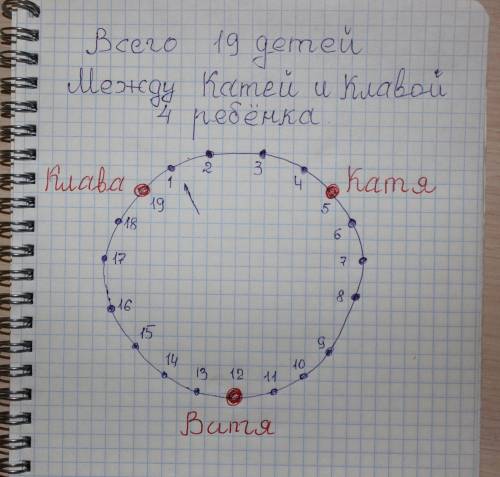 Всего 19 детей
Между Катей и Клавой
4 ребёнка
Клава
Катя
1
2
3
4
5
6
7
8
9
10
11
12
13
14
15
16
17
18
19
Витя